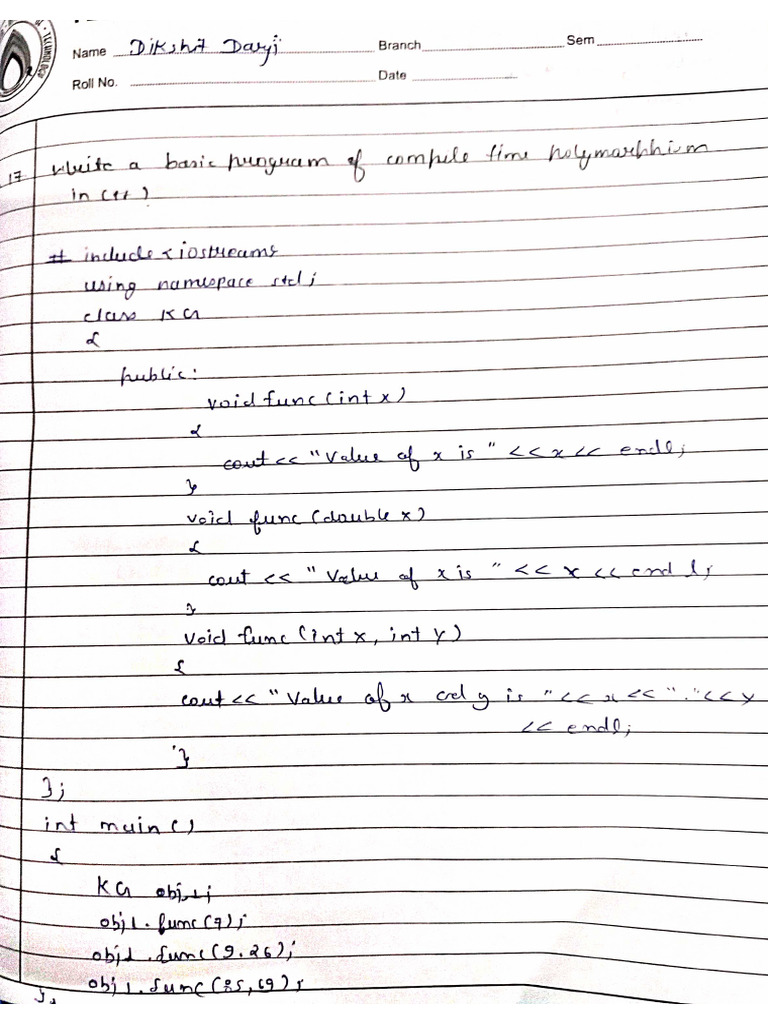 Name Dikshit Darji Branch Sem
Roll No. Date
17 Write a basic program of compile time polymarphism
in C++)
# include <iostreams
using namespace std;
class KG
{
public:
void func (int x)
{
cout << "Value of x is " << x << endl;
}
void func (double x)
{
cout << " Value of x is " << x << endl;
}
void func (int x, int y)
{
cout << "Value of x and y is " << x << "," << y
<< endl;
}
};
int main ()
{
KG obj1;
obj1.func(7);
obj1.func(9.26);
obj1.func(85,69);
}